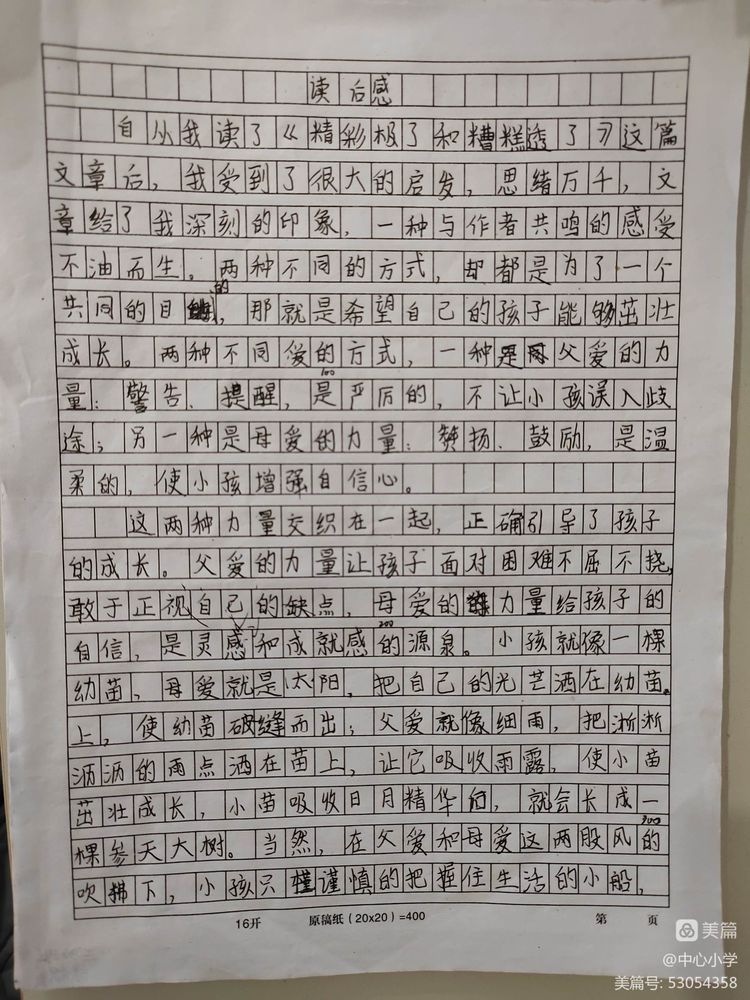 读后感
自从我读了《精彩极了和糟糕透了》这篇
文章后，我受到了很大的启发，思绪万千，文
章给了我深刻的印象，一种与作者共鸣的感受
不油而生。两种不同的方式，却都是为了一个
共同的目的，那就是希望自己的孩子能够茁壮
成长。两种不同爱的方式，一种是父爱的力
100
量：警告、提醒，是严厉的，不让小孩误入歧
途；另一种是母爱的力量：赞扬、鼓励，是温
柔的，使小孩增强自信心。
这两种力量交织在一起，正确引导了孩子
的成长。父爱的力量让孩子面对困难不屈不挠，
敢于正视自己的缺点，母爱的力量给孩子的
200
自信，是灵感和成就感的源泉。小孩就像一棵
幼苗，母爱就是太阳，把自己的光芒洒在幼苗
上，使幼苗破缝而出；父爱就像细雨，把淅淅
沥沥的雨点洒在苗上，让它吸收雨露，使小苗
茁壮成长，小苗吸收日月精华后，就会长成一
300
棵参天大树。当然，在父爱和母爱这两股风的
吹拂下，小孩只谨慎的把握住生活的小船，
16开 原稿纸（20x20）=400 第 页
美篇
@中心小学
美篇号: 53054358